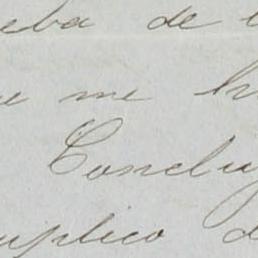 eba de
ue me
Concluy
uplico